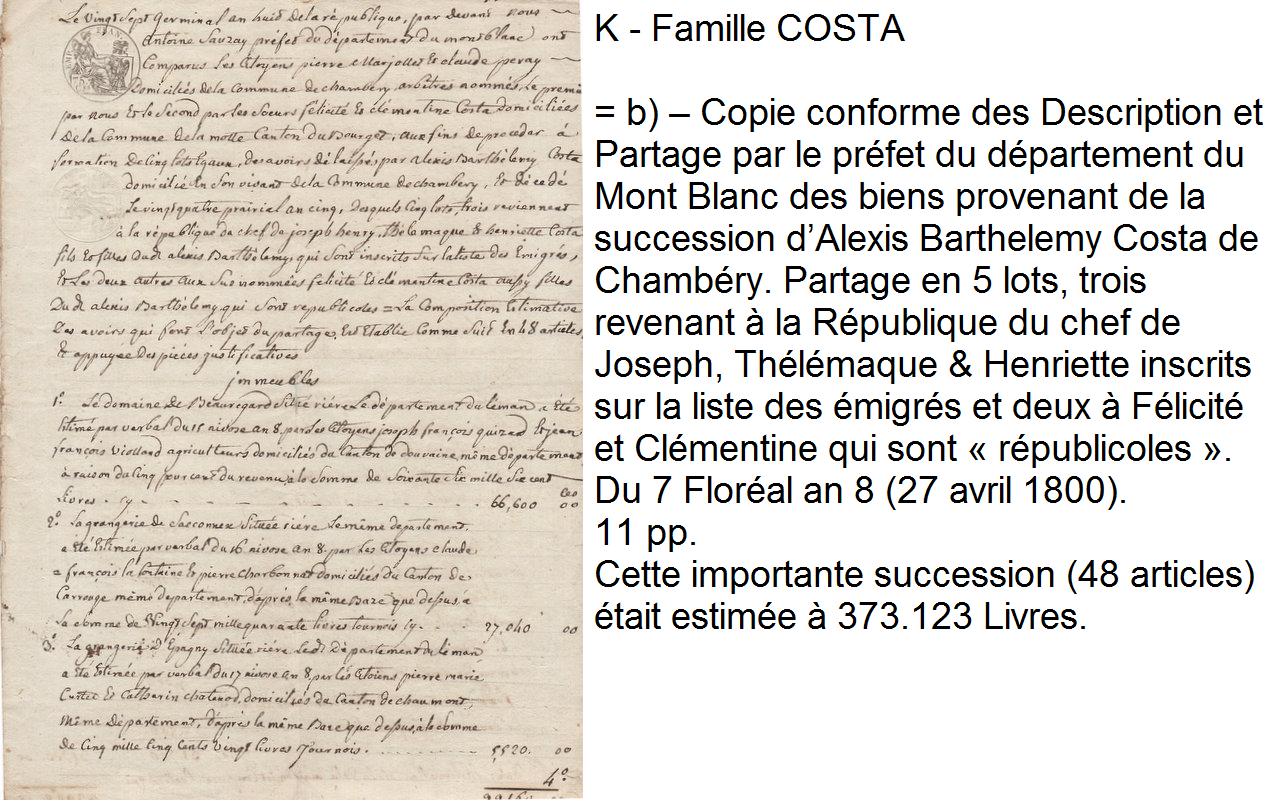 Le vingt Sept Germinal an huit de la république, par devant nous
Antoine Sauzay préfet du département du montblanc ont
Comparus Les Citoyens pierre Marjollet Et claude peray
Domiciliés de la Commune de chambery, arbitres nommés, Le premier
par nous Et le Second par les Soeurs félicité Et clémentine Costa domiciliées
De la Commune De la motte Canton du Bourget, aux fins de proceder à
formation de Cinq lots Egaux, des avoirs délaissés par alexis Barthélemy Costa
domicilié En Son vivant de la Commune de chambery, Et décedé
Le vingt quatre prairial an cinq, desquels Cinq lots, trois reviennent
à la république du chef de joseph henry, thélemaque & henriette Costa
fils Et filles Dud. alexis Barthélemy, qui Sont inscrits Sur la liste des Emigrés,
Et Les deux autres aux Sus nommées félicité Et clémentine Costa aussy filles
Du d. alexis Barthélemy, qui Sont republicoles = La Composition Estimative
Des avoirs qui font L'objet du partage, Est Etablie Comme Suit En 48 articles,
& appuyée Des piéces justificatives
jmmeubles
1°. Le domaine de Beauregard Sitié riére Le département du léman a été
Estimé par verbal du 15 nivose an 8, par Les Citoyens joseph françois quizard Et jean
françois Violland agriculteurs domiciliés du Canton de douvaine, même département,
à raison du Cinq pour cent du revenu, à la Somme de Soixante Six mille Six cent
Livres - Cy - 66,600 00
2°. La grangerie de Sacconnex Située riére Le même département,
a été Estimée par verbal du 16 nivose an 8. par Les Citoyens claude
= françois la fontaine Et pierre Charbonnat domiciliés du Canton de
Carrouge même département, d'après la même Baze que dessus, à
La Somme de Vingt Sept mille quarante livres tournois Cy - 27,040 00
3°. La grangerie d'Epagny Située riére Led. Département du léman,
a été Estimée par verbal du 17 nivose an 8, par les Citoiens pierre marie
Curtet Et Catherin chatenod, domiciliés du Canton de chaumont,
Même Département, d'après la même Baze que dessus, à la Somme
de Cinq mille Cinq Cents Vingt livres Tournois. 5520. 00
4°.
K - Famille COSTA
= b) – Copie conforme des Description et
Partage par le préfet du département du
Mont Blanc des biens provenant de la
succession d’Alexis Barthelemy Costa de
Chambéry. Partage en 5 lots, trois
revenant à la République du chef de
Joseph, Thélémaque & Henriette inscrits
sur la liste des émigrés et deux à Félicité
et Clémentine qui sont « républicoles ».
Du 7 Floréal an 8 (27 avril 1800).
11 pp.
Cette importante succession (48 articles)
était estimée à 373.123 Livres.